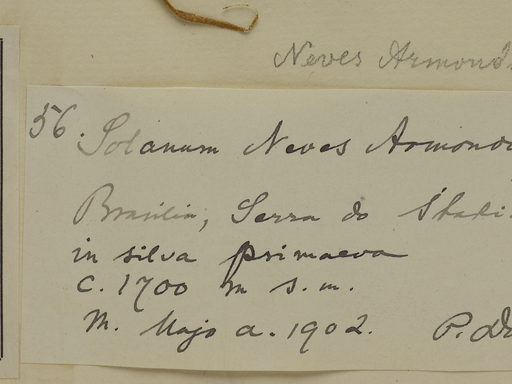 Neves Armond
56. Solanum Neves Armondi
Brasilia, Serra do Itati
in silva primaeva
c. 1700 m s. m.
M. Majo a. 1902. P. Du